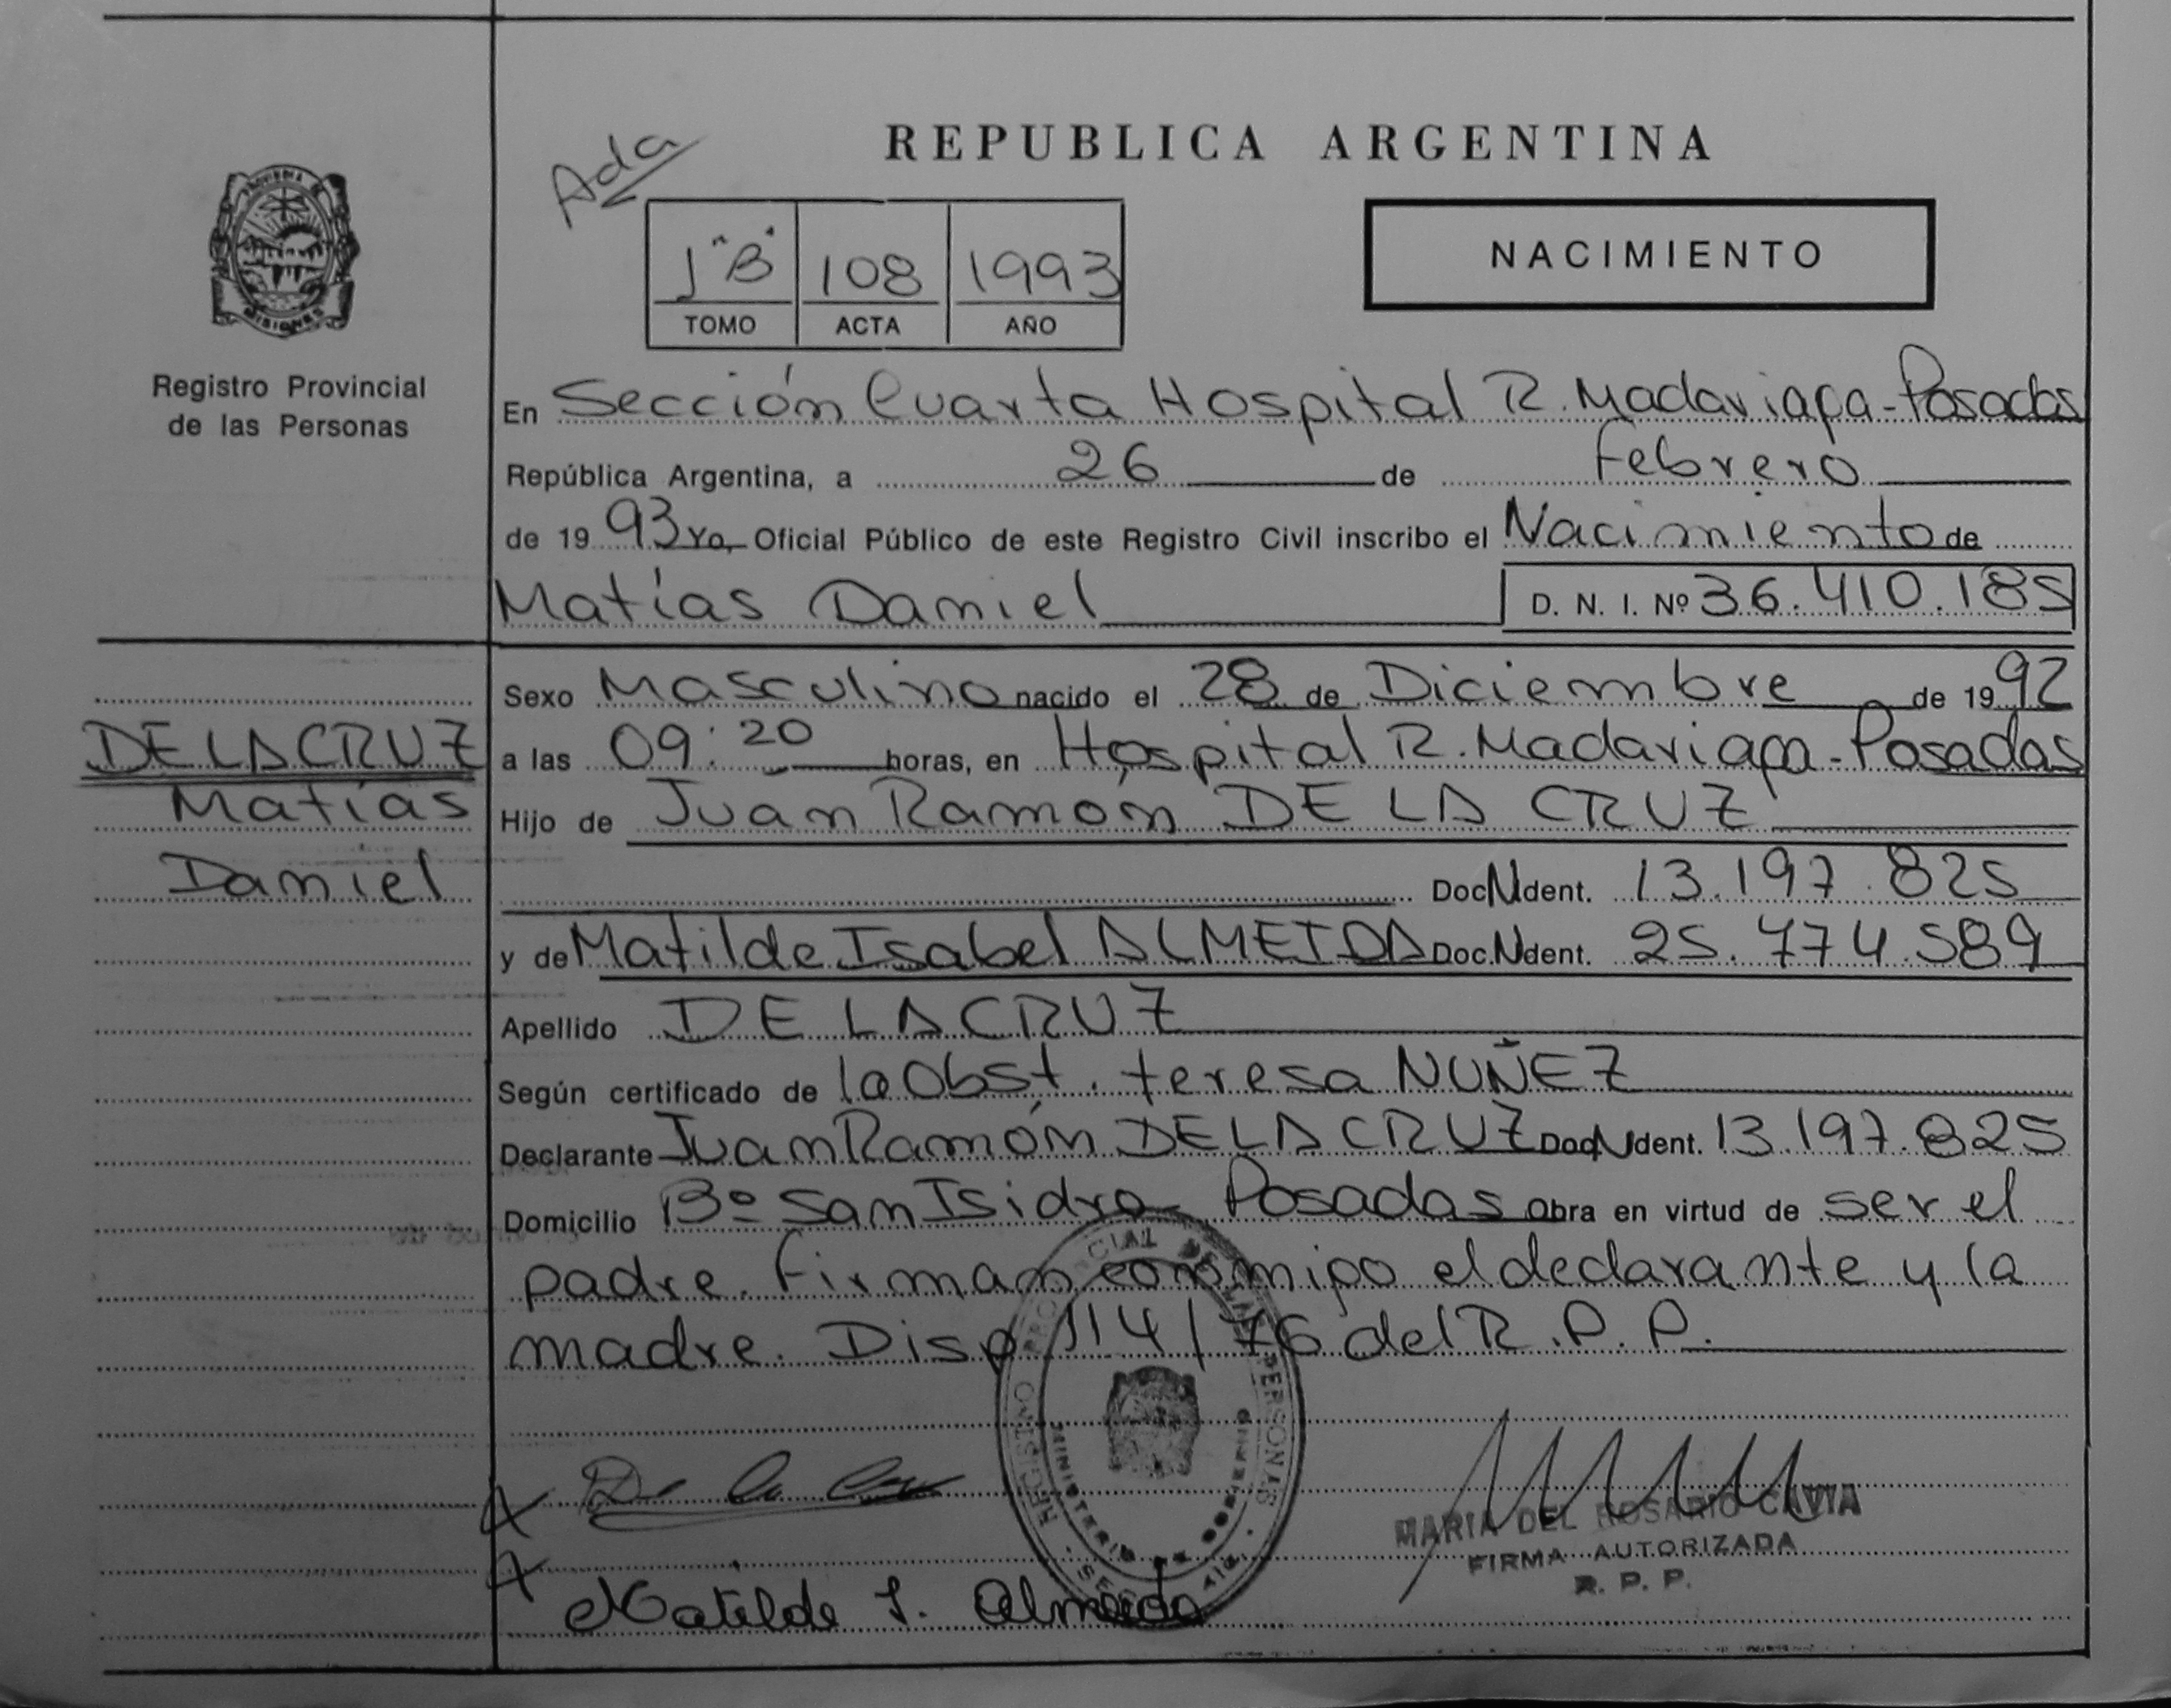 REPUBLICA ARGENTINA
Ada
1 "B" 108 1993
TOMO ACTA AÑO
NACIMIENTO
PROVINCIA DE
MISIONES
Registro Provincial
de las Personas
En Sección Cuarta Hospital R. Madariaga - Posadas
República Argentina, a 26 de Febrero
de 1993 Yo, Oficial Público de este Registro Civil inscribo el Nacimiento de
Matías Daniel D. N. I. Nº 36.410.185
Sexo Masculino nacido el 28 de Diciembre de 1992
DE LA CRUZ
a las 09:20 horas, en Hospital R. Madariaga - Posadas
Matías
Hijo de Juan Ramón DE LA CRUZ
Daniel
Doc N Ident. 13.197.825
y de Matilde Isabel ALMEIDA Doc. N Ident. 25.774.589
Apellido DE LA CRUZ
Según certificado de la Obst. teresa NUÑEZ
Declarante Juan Ramón DE LA CRUZ Doc N Ident. 13.197.825
Domicilio Bº San Isidro - Posadas Obra en virtud de ser el
padre. Firman conmigo el declarante y la
madre. Disp 114/76 del R.P.P.
REGISTRO PROVINCIAL DE LAS PERSONAS
MINISTERIO DE GOBIERNO
De la Cruz
MARIA DEL ROSARIO CAVIA
FIRMA AUTORIZADA
R. P. P.
Matilde I. Almeida